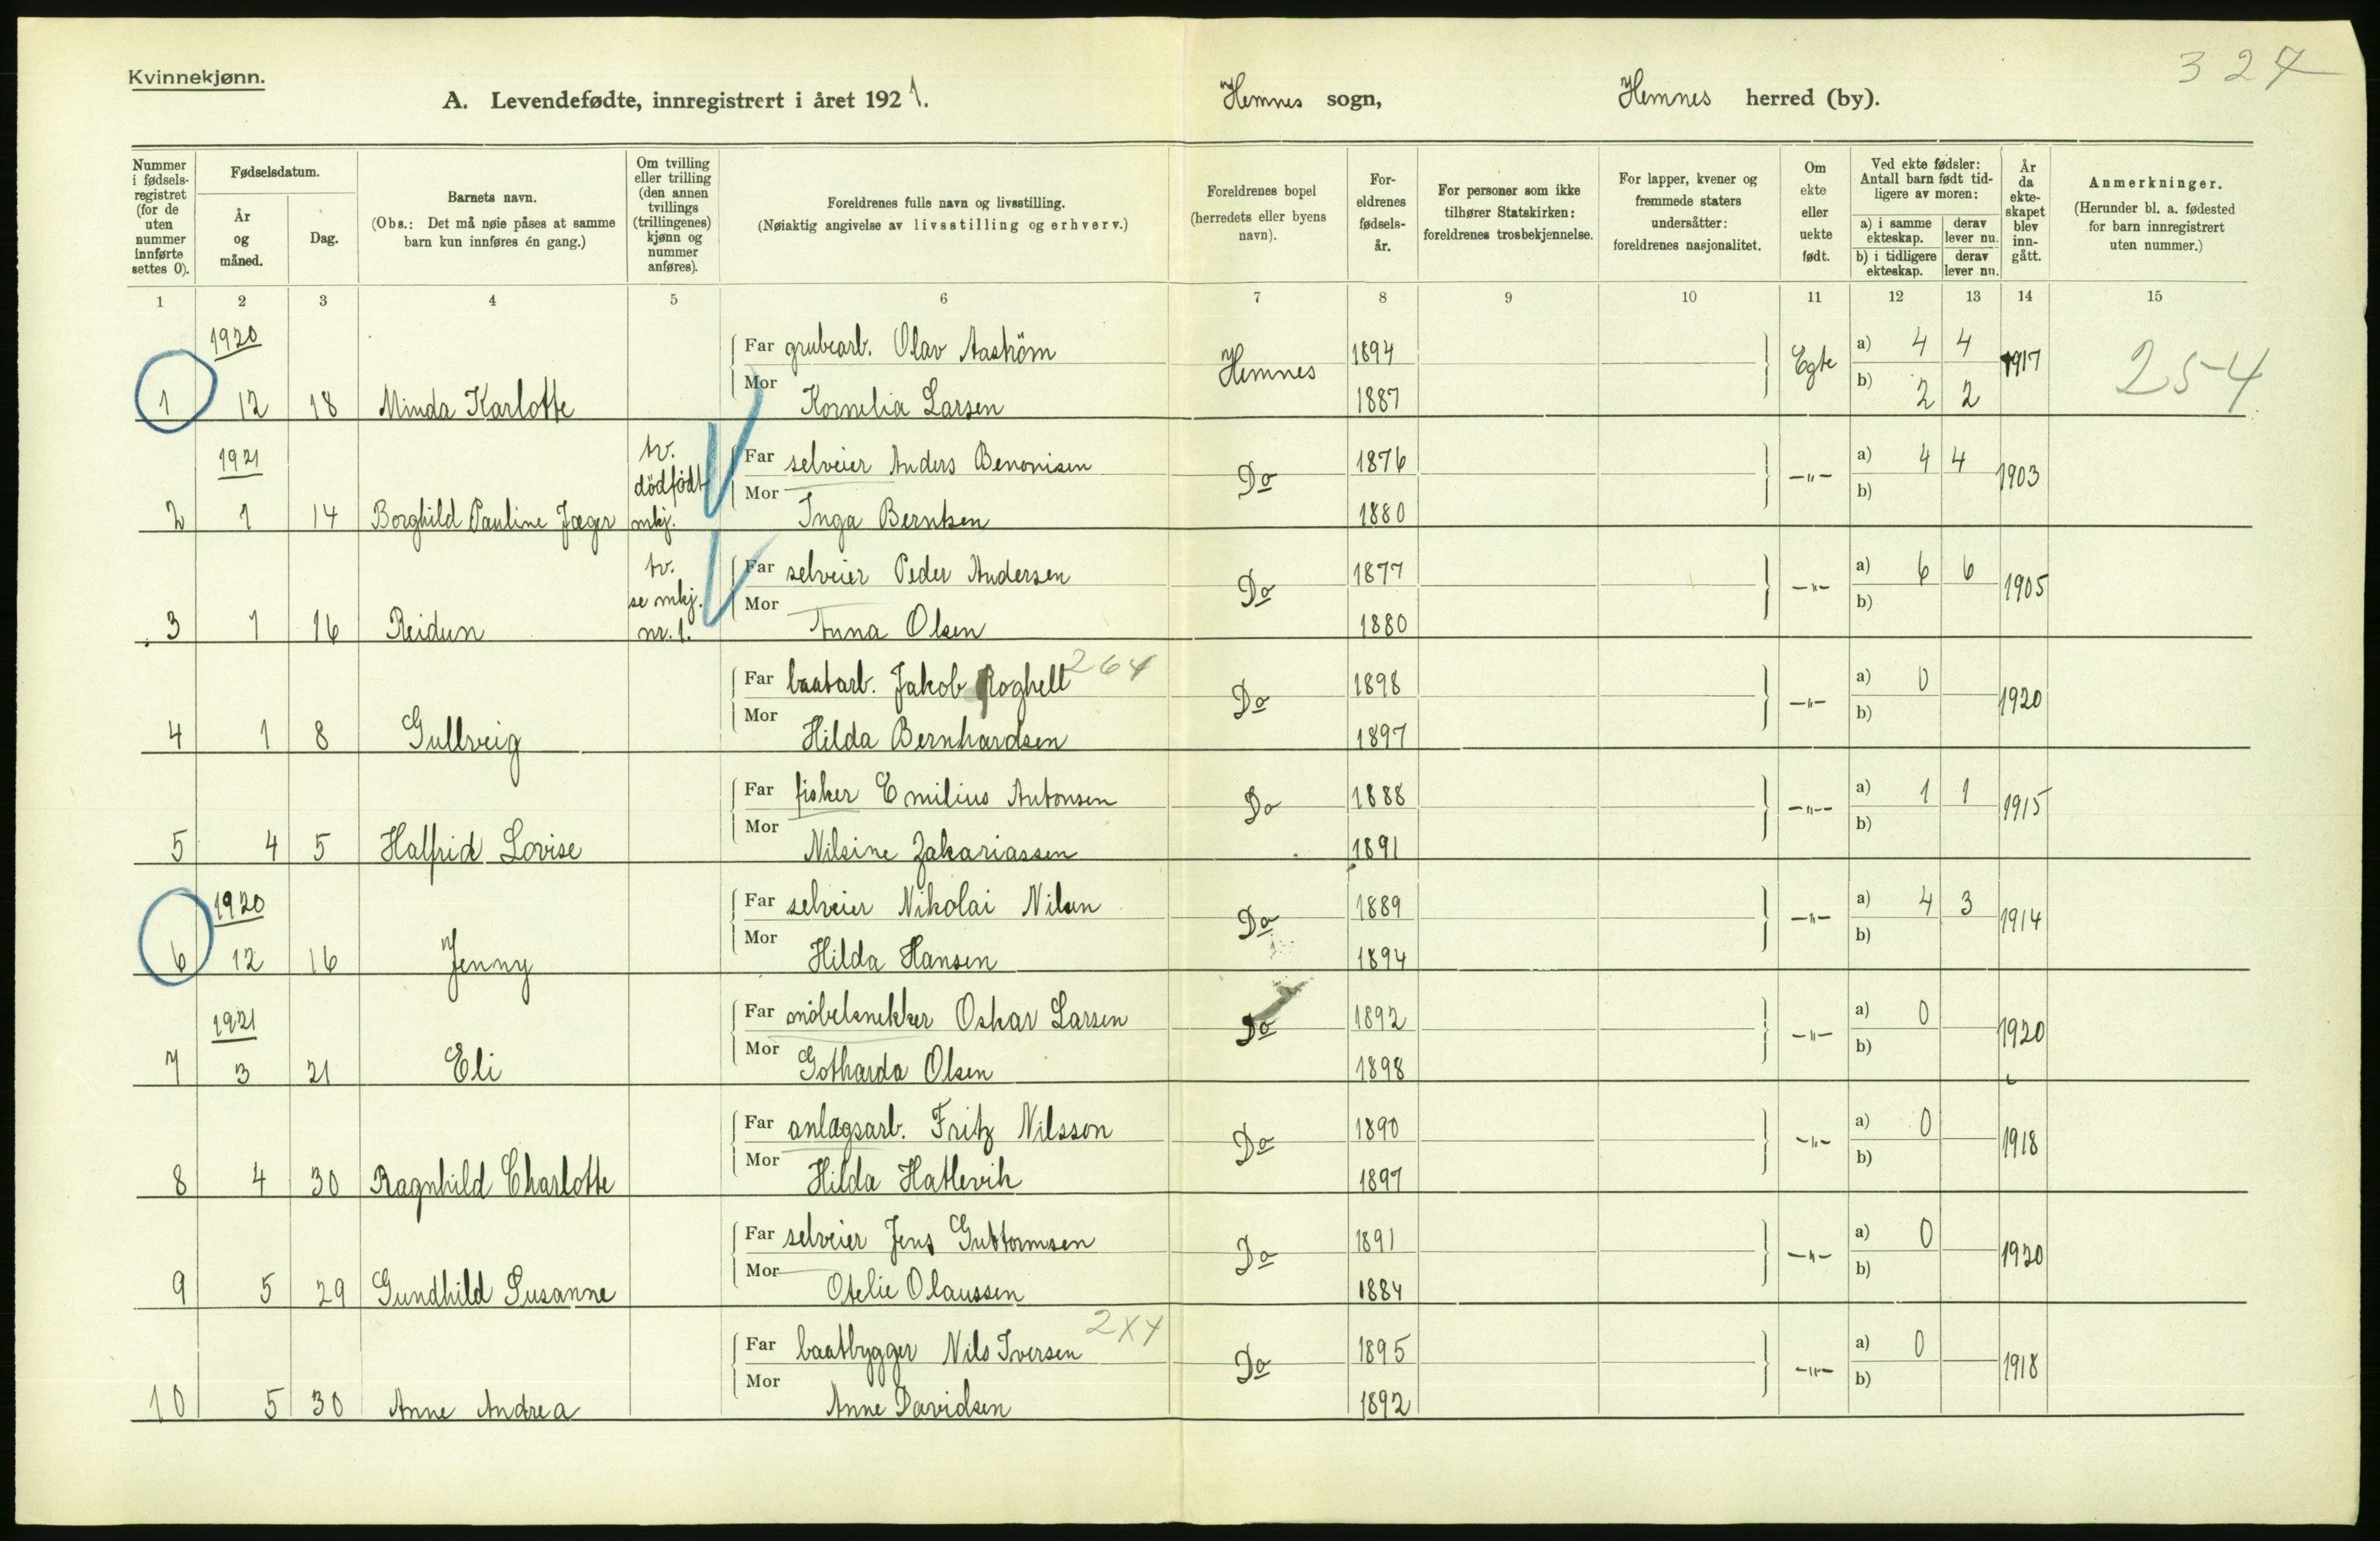 324
Kvinnekjønn.
A. Levendefødte, innregistrert i året 1921. Hemnes sogn, Hemnes herred (by).
Nummer i fødsels-registret (for de uten nummer innførte settes 0).
Fødselsdatum.
År og måned.
Dag.
Barnets navn.
(Obs.: Det må nøie påses at samme barn kun innføres én gang.)
Om tvilling eller trilling (den annen tvillings (trillingenes) kjønn og nummer anføres).
Foreldrenes fulle navn og livsstilling.
(Nøiaktig angivelse av livsstilling og erhverv.)
Foreldrenes bopel (herredets eller byens navn).
For-eldrenes fødsels-år.
For personer som ikke tilhører Statskirken: foreldrenes trosbekjennelse.
For lapper, kvener og fremmede staters undersåtter: foreldrenes nasjonalitet.
Om ekte eller uekte født.
Ved ekte fødsler: Antall barn født tid-ligere av moren:
a) i samme ekteskap. derav lever nu.
b) i tidligere ekteskap. derav lever nu.
År da ekte-skapet blev inn-gått.
Anmerkninger.
(Herunder bl. a. fødested for barn innregistrert uten nummer.)
1 2 3 4 5 6 7 8 9 10 11 12 13 14 15
1920 Far grubearb. Olav Aaström Hemnes 1894 Egte a) 4 4 1917 254
1 12 18 Minda Karlotte Mor Kornelia Larsen 1887 b) 2 2
1921 tv. dödfödt mkj. Far selveier Anders Benonisen Do 1876 -"- a) 4 4 1903
2 1 14 Borghild Pauline Jæger Mor Inga Berntsen 1880 b)
tv. se mkj. nr. 1. Far selveier Peder Andersen Do 1877 -"- a) 6 6 1905
3 1 16 Reidun Mor Anna Olsen 1880 b)
Far baatarb. Jakob Roghell 264 Do 1898 -"- a) 0 1920
4 1 8 Gullveig Mor Hilda Bernhardsen 1897 b)
Far fisker Emilius Antonsen Do 1888 -"- a) 1 1 1915
5 4 5 Halfrid Lovise Mor Nilsine Zakariassen 1891 b)
1920 Far selveier Nikolai Nilsen Do 1889 -"- a) 4 3 1914
6 12 16 Jenny Mor Hilda Hansen 1894 b)
1921 Far möbelsnekker Oskar Larsen Do 1892 -"- a) 0 1920
7 3 21 Eli Mor Gotharda Olsen 1898 b)
Far anlægsarb. Fritz Nilsson Do 1890 -"- a) 0 1918
8 4 30 Ragnhild Charlotte Mor Hilda Hatlevik 1897 b)
Far selveier Jens Guttormsen Do 1891 -"- a) 0 1920
9 5 29 Gundhild Susanne Mor Otelie Olaussen 1884 b)
Far baatbygger Nils Iversen 2X4 Do 1895 -"- a) 0 1918
10 5 30 Anne Andrea Mor Anne Davidsen 1892 b)